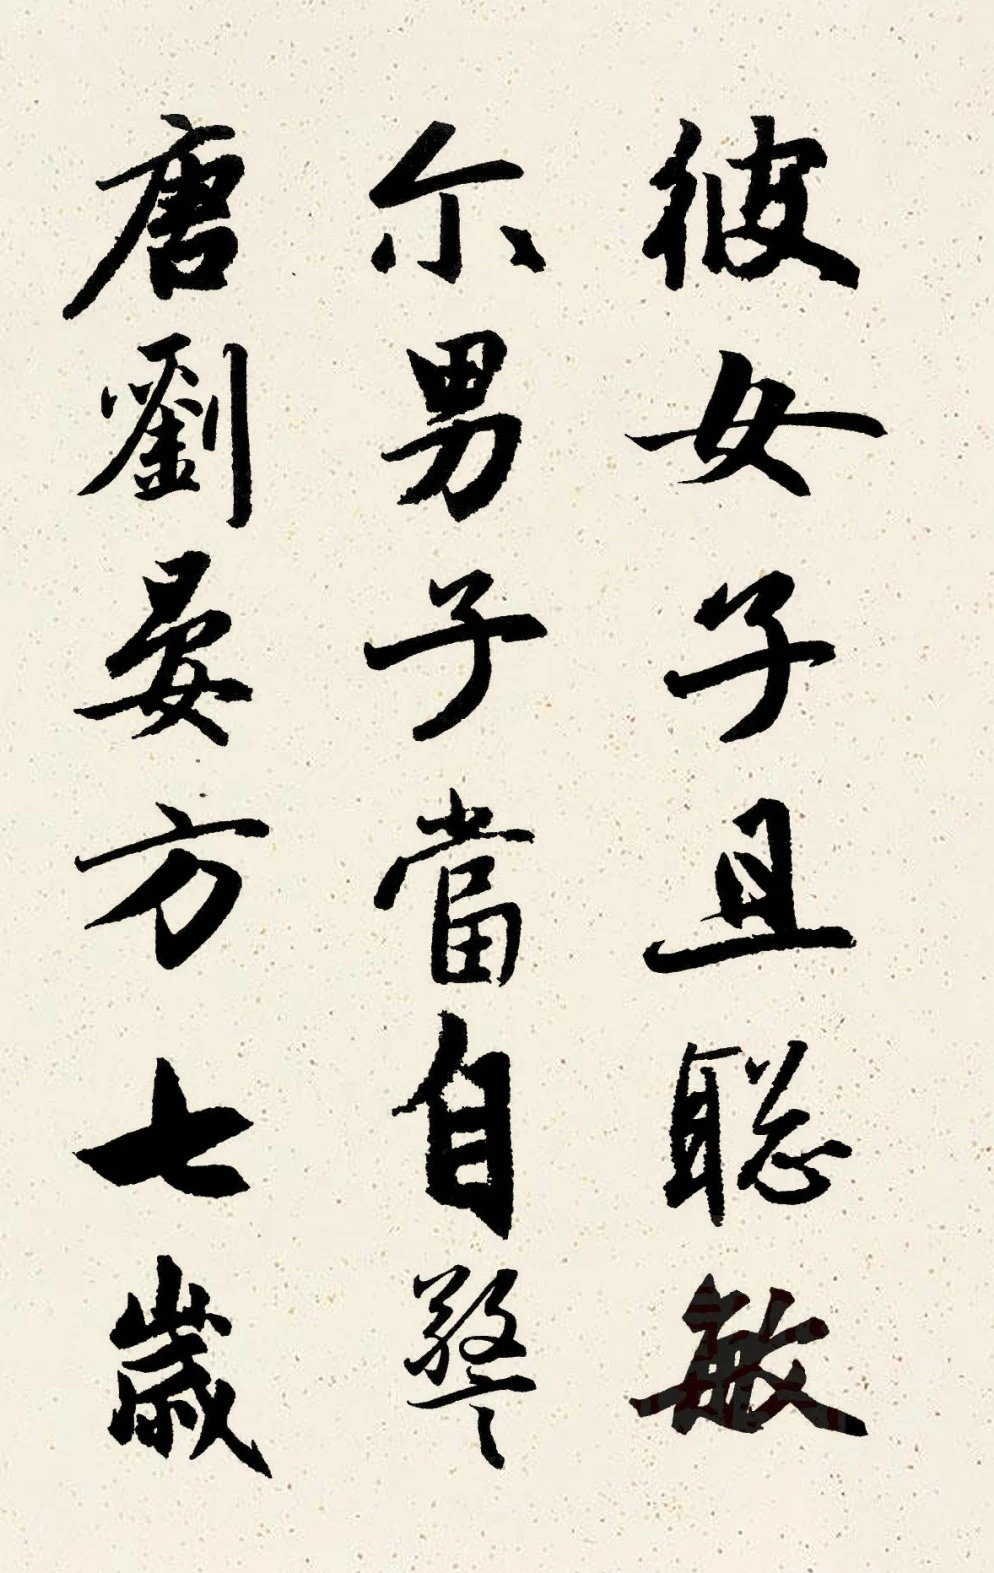 彼女子且聡敏
尔男子當自警
唐劉晏方七歲